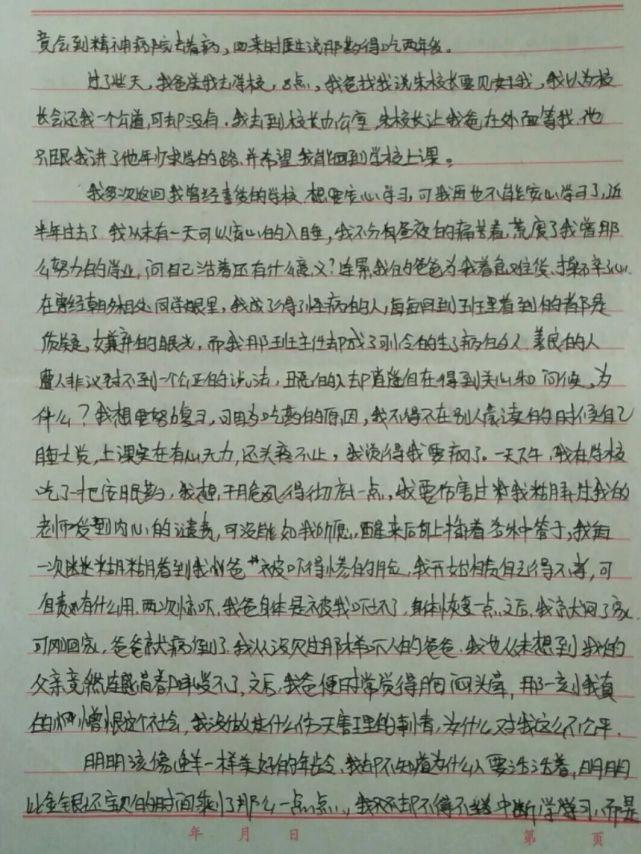 竟会到精神病院去看病，回来时医生说那药得吃两年级。
过了些天，我爸送我去学校，8点，我爸找我说朱校长要见见我，我以为校
长会还我一个公道，可却没有，我去到校长办公室，朱校长让我爸在外面等我，他
只跟我讲了他年少求学的路，并希望我能回到学校上课。
我多次返回我曾经喜爱的学校，想要安心学习，可我再也不能安心学习了，近
半年过去了，我从未有一天可以安心的入睡，我不分昼夜的痛苦着，荒废了我曾那
么努力的学业，问自己活着还有什么意义？连累我的爸爸为我着急难受、操碎了心。
在曾经朝夕相处同学眼里，我成了得了怪病的人，每每回到班里看到的都是
质疑、嫌弃的眼光，而我那班主任却成了可怜的生了病的人，善良的人
遭人非议，讨不到一个公正的说法，丑恶的人却自在得到关心和问候，为
什么？我想要努力复习，可因为吃药的原因，我不得不在别人读书的时候自己
睡大觉，上课实在有心无力，还头疼不止，我觉得我要疯了。一天下午，我在学校
吃了一把安眠药，我想，干脆死得彻底一点，我要伤害过我
老师受到内心的谴责，可没能如我所愿，醒来后身上插着多条管子，我每
一次迷迷糊糊看到我爸被吓得惨白的脸，我开始自责自己得不孝，可
自责还有什么用，两次惊吓，我爸身体是不被我吓坏了，身体恢复一点之后，我京大网了家，
可刚回家，爸爸就病倒了，我从没见过那样吓人的爸爸，我也从未想到我的
父亲竟然连感冒都受不了，之后，我爸便时常觉得胸闷头晕，那一刻我真
的好憎恨这个社会，我没做过什么伤天害理的事情，为什么对我这么不公平。
明明该像花一样美好的年龄，我却不知道为什么要活着，明明
比金银还宝贵的时间剩了那么一点点，我却不得不中断学习，而是
年 月 日 第 页